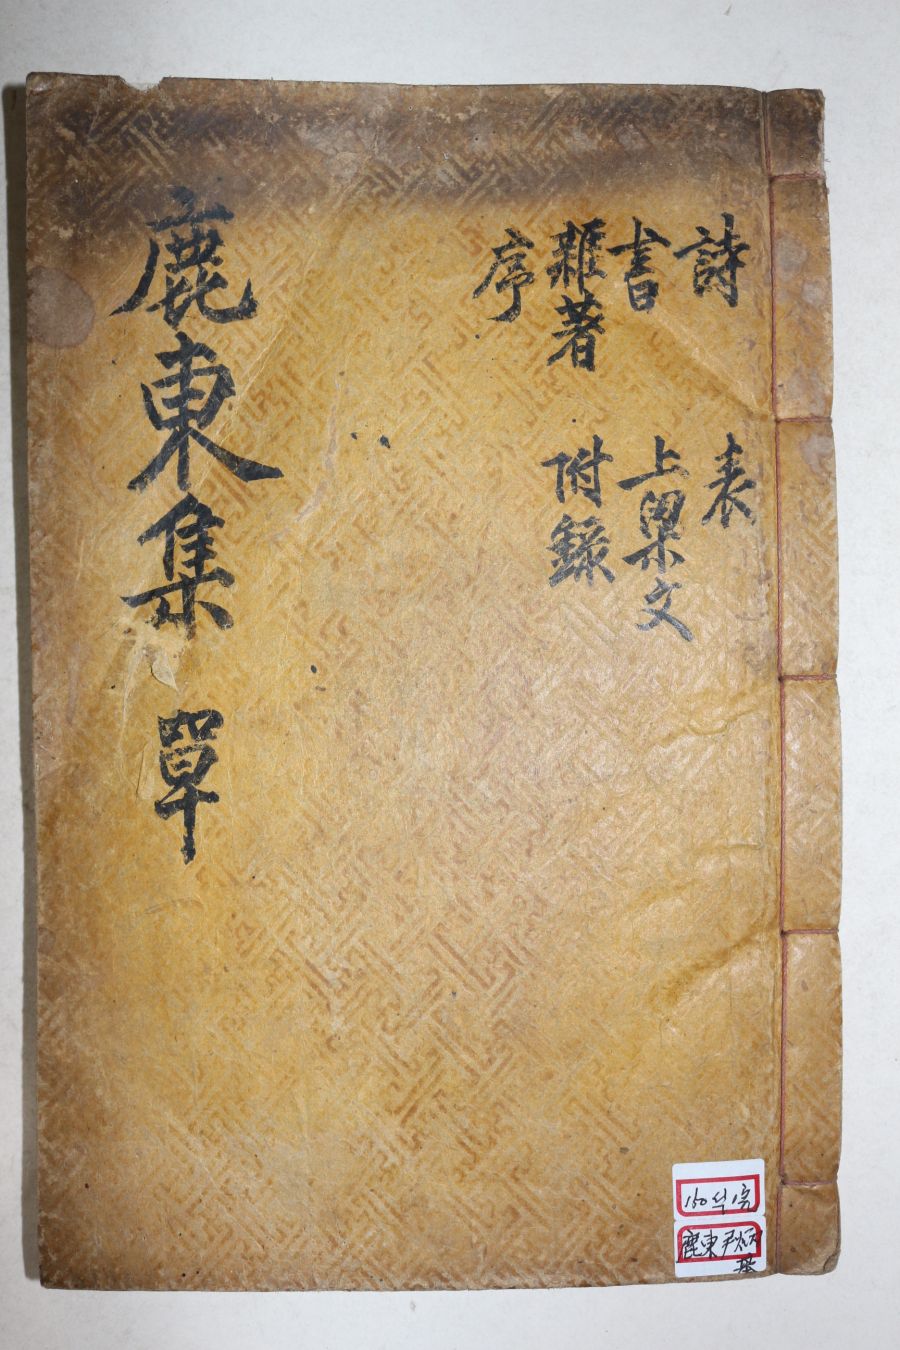 詩
書
雜著
序
表
上梁文
附錄
鹿東集 單
150 식 1完
鹿東 尹炳
基